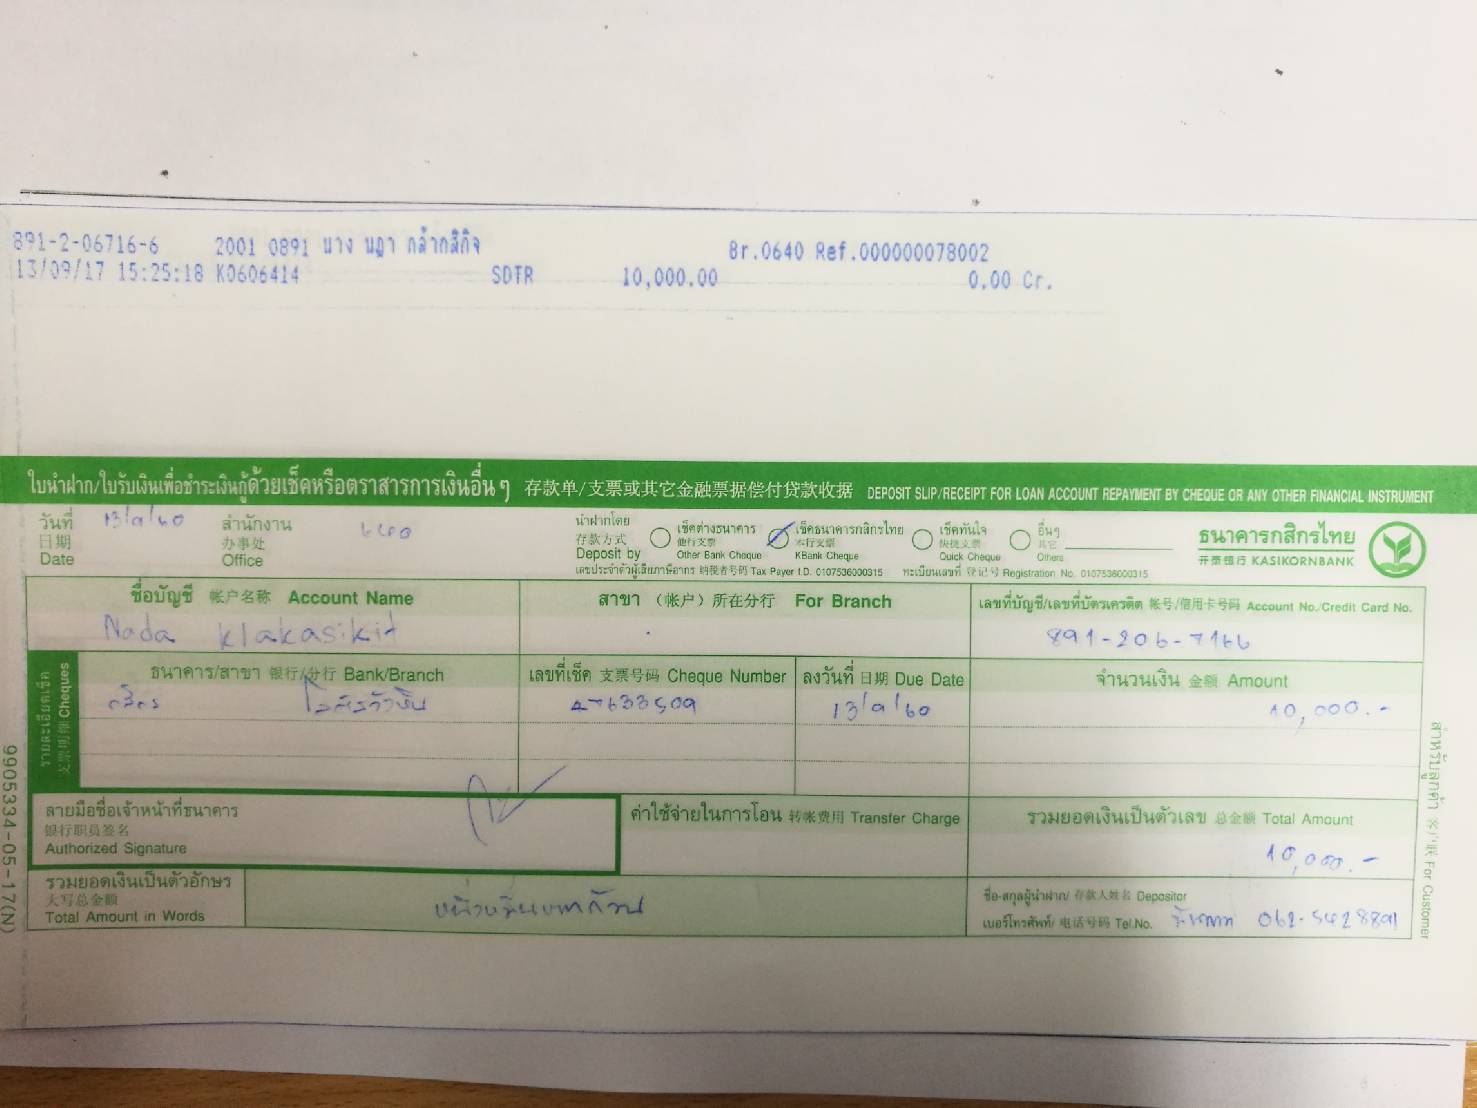 891-2-06716-6 2001 0891 นาง นฎา กล้ากสิกิจ Br.0640 Ref.000000078002
13/09/17 15:25:18 K0606414 SDTR 10,000.00 0.00 Cr.
ใบนำฝาก/ใบรับเงินเพื่อชำระเงินกู้ด้วยเช็คหรือตราสารการเงินอื่น ๆ 存款单/支票或其它金融票据偿付贷款收据 DEPOSIT SLIP/RECEIPT FOR LOAN ACCOUNT REPAYMENT BY CHEQUE OR ANY OTHER FINANCIAL INSTRUMENT
วันที่ 13/9/60 สำนักงาน
日期 办事处
Date Office
นำฝากโดย เช็คต่างธนาคาร เช็คธนาคารกสิกรไทย เช็คทันใจ อื่นๆ
存款方式 他行支票 本行支票 快捷支票 其它
Deposit by Other Bank Cheque KBank Cheque Quick Cheque Others
เลขประจำตัวผู้เสียภาษีอากร 纳税者号码 Tax Payer I.D. 0107536000315 ทะเบียนเลขที่ 登记号 Registration No. 0107536000315
ธนาคารกสิกรไทย
开泰银行 KASIKORNBANK
ชื่อบัญชี 帐户名称 Account Name สาขา (帐户) 所在分行 For Branch เลขที่บัญชี/เลขที่บัตรเครดิต 帐号/信用卡号码 Account No./Credit Card No.
Nada klakasikit 891-206-7166
รายละเอียดเช็ค
支票明细 Cheques
ธนาคาร/สาขา 银行/分行 Bank/Branch เลขที่เช็ค 支票号码 Cheque Number ลงวันที่ 日期 Due Date จำนวนเงิน 金额 Amount
กสิกร 47633509 13/9/60 10,000.-
ลายมือชื่อเจ้าหน้าที่ธนาคาร
银行职员签名
Authorized Signature
ค่าใช้จ่ายในการโอน 转帐费用 Transfer Charge
รวมยอดเงินเป็นตัวเลข 总金额 Total Amount
10,000.-
รวมยอดเงินเป็นตัวอักษร
大写总金额
Total Amount in Words
หนึ่งหมื่นบาทถ้วน
ชื่อ-สกุลผู้นำฝาก/ 存款人姓名 Depositor
เบอร์โทรศัพท์/ 电话号码 Tel.No. 062-5428891
สำหรับลูกค้า 客户联 For Customer
9905334-05-17(N)